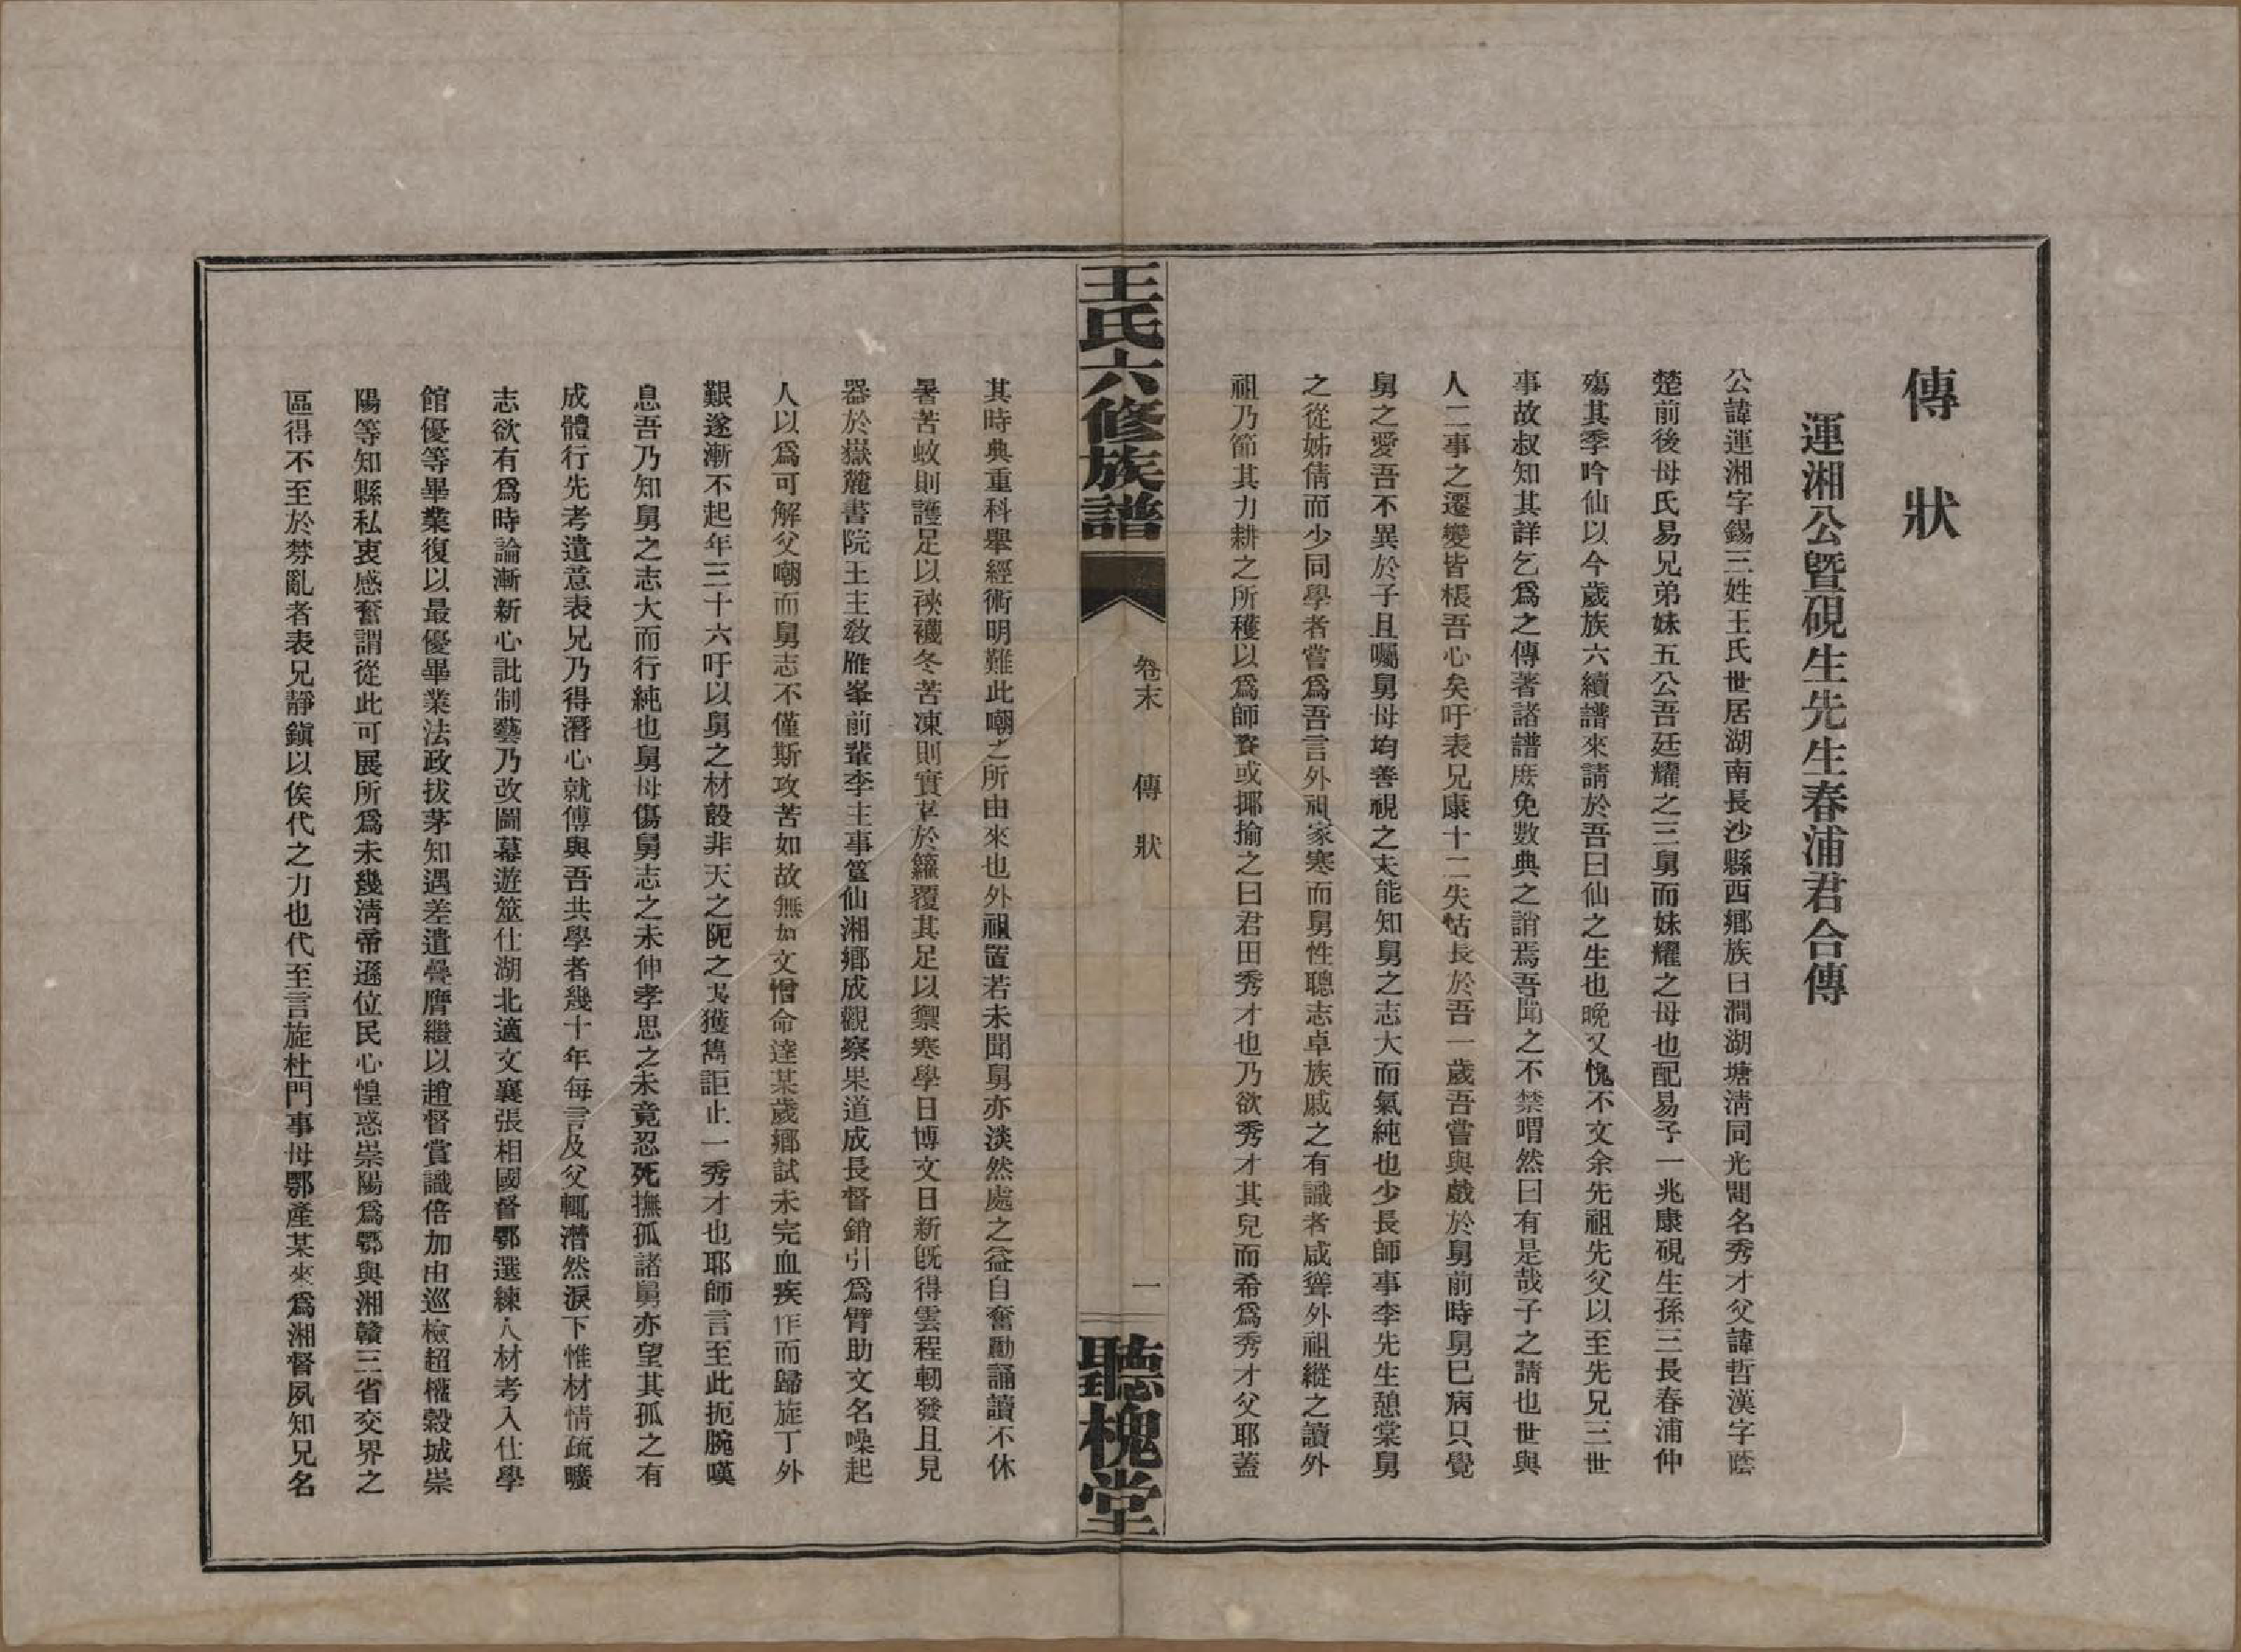 傳狀
運湘公曁硯生先生春浦君合傳
公諱運湘字錫三姓王氏世居湖南長沙縣西鄕族曰澗湖塘淸同光閒名秀才父諱哲漢字蔭
楚前後母氏易兄弟妹五公吾廷耀之三舅而妹耀之母也配易子一兆康硯生孫三長春浦仲
殤其季吟仙以今歲族六續譜來請於吾曰仙之生也晚又愧不文余先祖先父以至先兄三世
事故叔知其詳乞爲之傳著諸譜庶免數典之誚焉吾聞之不禁喟然曰有是哉子之請也世與
人二事之遷變皆棖吾心矣吁表兄康十二失怙長於吾一歲吾嘗與戲於舅前時舅巳病只覺
舅之愛吾不異於子且囑舅母均善視之未能知舅之志大而氣純也少長師事李先生憩棠舅
之從姊倩而少同學者嘗爲吾言外祖家寒而舅性聰志卓族戚之有識者咸聳外祖縱之讀外
祖乃節其力耕之所穫以爲師賚或揶揄之曰君田秀才也乃欲秀才其兒而希爲秀才父耶蓋
王氏六修族譜 卷末 傳狀 一 聽槐堂
其時典重科舉經術明難此嘲之所由來也外祖置若未聞舅亦淡然處之益自奮勵誦讀不休
暑苦蚊則護足以裌襪冬苦凍則實草於籮覆其足以禦寒學日博文日新旣得雲程軔發且見
器於嶽麓書院王主敎雁峯前輩李主事篁仙湘鄕成觀察果道成長督銷引爲臂助文名噪起
人以爲可解父嘲而舅志不僅斯攻苦如故無如文憎命達某歲鄕試未完血疾作而歸旋丁外
艱遂漸不起年三十六吁以舅之材設非天之阨之其獲雋詎止一秀才也耶師言至此扼腕嘆
息吾乃知舅之志大而行純也舅母傷舅志之未伸孝思之未竟忍死撫孤諸舅亦望其孤之有
成體行先考遺意表兄乃得潛心就傅與吾共學者幾十年每言及父輒潸然淚下惟材情疏曠
志欲有爲時論漸新心訿制藝乃改圖幕遊筮仕湖北適文襄張相國督鄂選練人材考入仕學
館優等畢業復以最優畢業法政拔茅知遇差遣疊膺繼以趙督賞識倍加由巡檢超權穀城崇
陽等知縣私衷感奮謂從此可展所爲未幾淸帝遜位民心惶惑崇陽爲鄂與湘贛三省交界之
區得不至於棼亂者表兄靜鎭以俟代之力也代至言旋杜門事母鄂產某來爲湘督夙知兄名